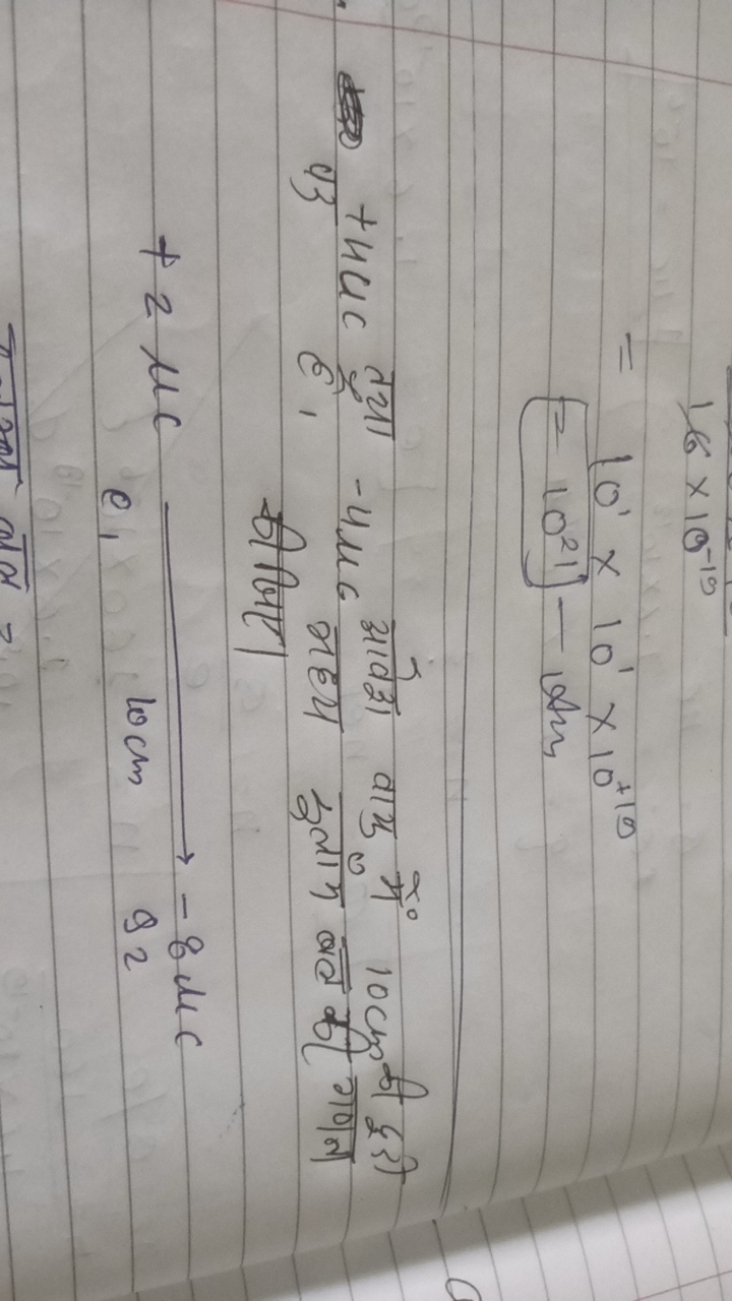 16 × 10⁻¹⁹
= 10¹ × 10¹ × 10⁺¹⁹
= 10²¹ - Ans
+4μc तथा -4μc आवेश वायु में 10cm की दूरी
पर है, मध्य कुलाम बल की गणन
कीजिए
+ 2 μc → - 8 μc
e₁ 10cm 92